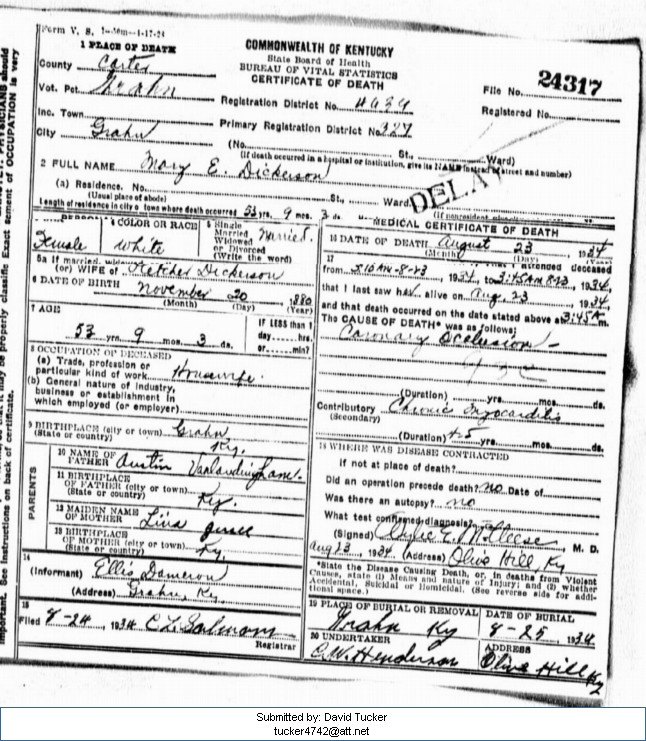 Form V. S. 1-50m-1-17-24
1 PLACE OF DEATH
COMMONWEALTH OF KENTUCKY
State Board of Health
BUREAU OF VITAL STATISTICS
CERTIFICATE OF DEATH
County Carter
Vot. Pct. Grahn
File No. 24317
Registration District No.
Registered No.
Inc. Town
Primary Registration District No.
City Grahn
(No. St., Ward)
(If death occurred in a hospital or institution, give its NAME instead of street and number)
2 FULL NAME Mary E. Dickerson
(a) Residence. No. St., Ward
(Usual place of abode)
DELAY
Length of residence in city or town where death occurred 53 yrs. 9 mos. 3 ds.
4 COLOR OR RACE
5 Single
Married
Widowed
or Divorced
(Write the word)
Female White Married
5a If married, widowed
(or) WIFE of Fletcher Dickerson
6 DATE OF BIRTH November 20 1880
(Month) (Day) (Year)
7 AGE
53 yrs. 9 mos. 3 ds.
IF LESS than 1
day hrs.
or min?
8 OCCUPATION OF DECEASED
(a) Trade, profession or
particular kind of work Housewife
(b) General nature of industry,
business or establishment in
which employed (or employer)
9 BIRTHPLACE (city or town) Grahn
(State or country) Ky.
PARENTS
10 NAME OF
FATHER Austin
11 BIRTHPLACE
OF FATHER (city or town)
(State or country) Ky.
12 MAIDEN NAME
OF MOTHER
13 BIRTHPLACE
OF MOTHER (city or town)
(State or country) Ky.
14
(Informant) Ellis Dameron
(Address) Grahn, Ky.
15
Filed 8-24, 1934 C L Salmons
Registrar
MEDICAL CERTIFICATE OF DEATH
16 DATE OF DEATH August 23, 1934
(Month) (Day) (Year)
17
attended deceased
from 3:10 AM-8-23, 1934, to 3:45AM 8-23, 1934,
that I last saw her alive on Aug. 23, 1934,
and that death occurred on the date stated above at 3:45 A m.
The CAUSE OF DEATH* was as follows:
Coronary Occlusion
(Duration) yrs. mos. ds.
Contributory Chronic Myocarditis
(Secondary)
(Duration) yrs. mos. ds.
18 WHERE WAS DISEASE CONTRACTED
if not at place of death?
Did an operation precede death? no Date of
Was there an autopsy? no
What test confirmed diagnosis?
(Signed) M. D.
Aug 23, 1934 (Address) Olive Hill, Ky
*State the Disease Causing Death, or, in deaths from Violent
Causes, state (1) Means and nature of Injury; and (2) whether
Accidental, Suicidal or Homicidal. (See reverse side for addi-
tional space.)
19 PLACE OF BURIAL OR REMOVAL DATE OF BURIAL
Grahn Ky 8-25, 1934
20 UNDERTAKER ADDRESS
C.W. Henderson Olive Hill Ky
Submitted by: David Tucker
tucker4742@att.net